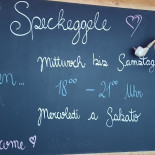 Speckeggele
Mittwoch bis Samstag
en...
18⁰⁰ - 21⁰⁰ Uhr
Mercoledì a Sabato
come